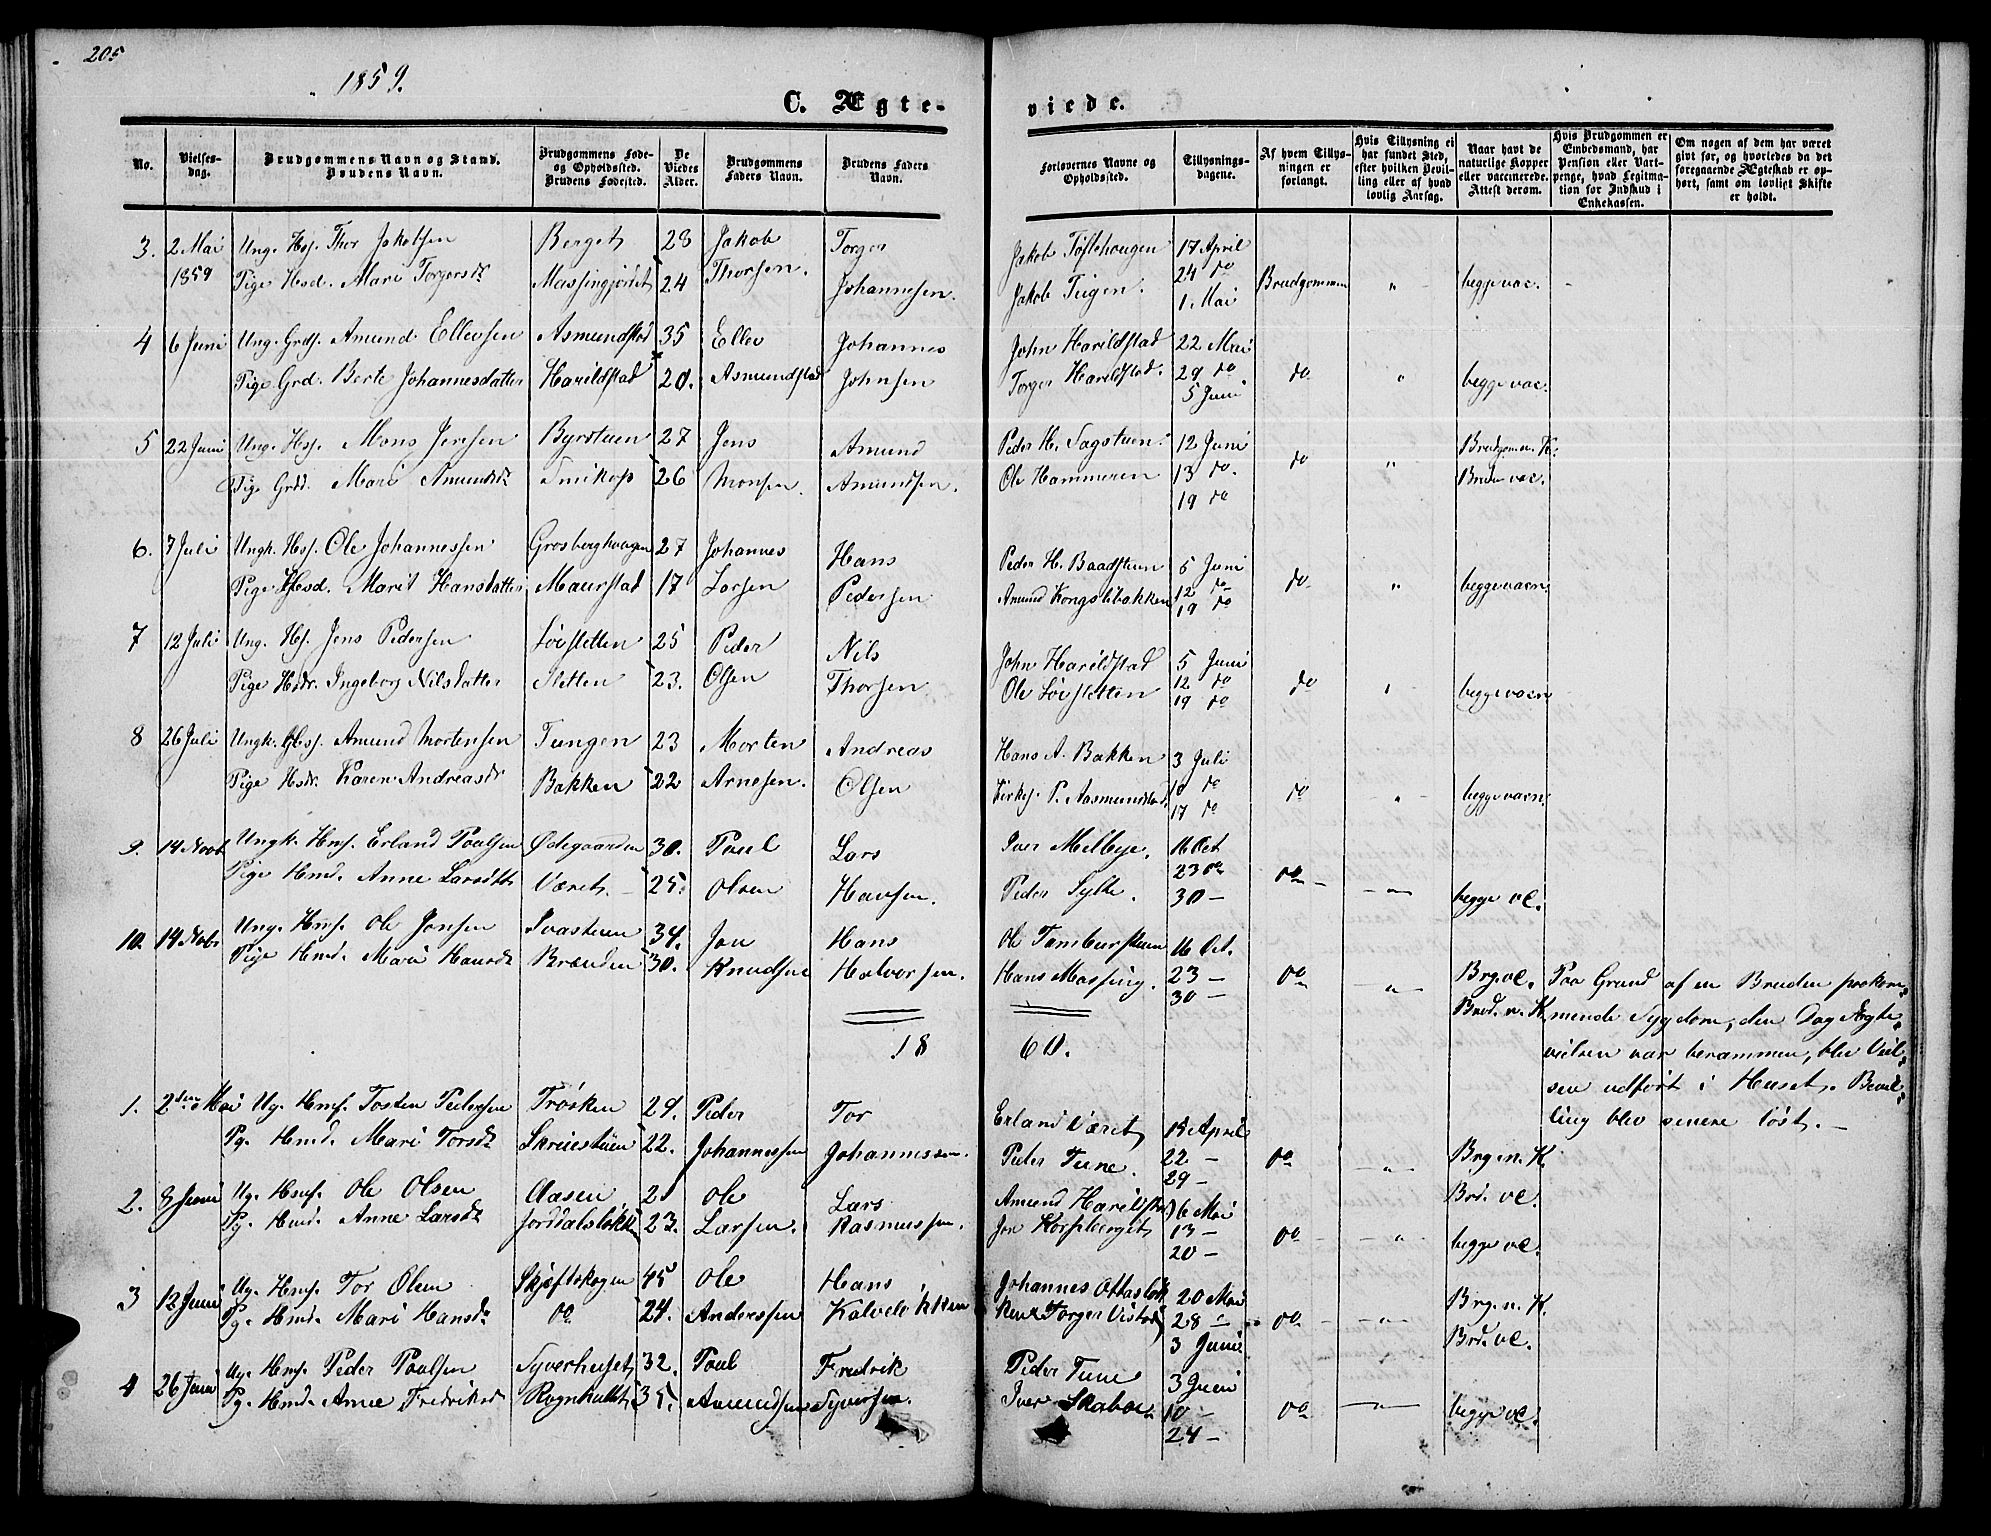 205
1859.
C. Ægte-
viede.
No.
Vielses-
dag.
Brudgommens Navn og Stand.
Brudens Navn.
Brudgommens Føde-
og Opholdssted.
Brudens Fødested.
De
Viedes
Alder.
Brudgommens
Faders Navn.
Brudens Faders
Navn.
Forlovernes Navne og
Opholdssted.
Tillysnings-
dagene.
Af hvem Tillys-
ningen er
forlangt.
Hvis Tillysning ei
har fundet Sted,
efter hvilken Bevil-
ling eller af hvad
lovlig Aarsag.
Naar havt de
naturlige Kopper
eller vaccinerede.
Attest derom.
Hvis Brudgommen er
Embedsmand, har
Pension eller Vart-
penge, hvad Legitma-
tion for Indskud i
Enkekassen.
Om nogen af dem har været
givt før, og hvorledes da det
foregaaende Ægteskab er op-
hørt, samt om lovligt Skifte
er holdt.
3. 2 Mai Ung. Hsf. Thor Jakobsen Berget 28 Jakob Torger Jakob Tøftehaugen 17 April
1859 Pige Hsd. Mari Torgersdt Massingjordet 24 Thorsen. Johannesen. Jakob Teigen. 24 do Brudgommen " begge vac.
1. Mai
4 6 Juni Ung. Grdf. Amund Ellevsen Asmundstad 35 Ellev Johannes John Harildstad 22 Mai
Pige Grd. Berte Johannesdatter Harildstad 20. Asmundstad Johnsen Torger Harildstad. 29 do do " begge vac.
5 Juni
5 22 Juni Ung. Hsf. Mons Jensen Byrstuen 27 Jens Amund Peder H. Sagstuen. 12 Juni Brudgommen. K.
Pige Grdd. Mari Amundsdt 26 Monsen. Amundsen. Ole Hammeren 13 do. do " Bruden vac.
19 do
6. 7 Juli Ungk. Hsf. Ole Johannessen Grosberghaugen 27 Johannes Hans Peder H. Baadstuen 5 Juni
Pige Hsd. Marit Hansdatter Maurstad 17 Larsen Pedersen Amund Kongslibakken 12 do do " begge vacn.
19 do
7 12 Juli Ung. Hsf. Jens Pedersen Løvsletten 25 Peder Nils John Harildstad 5 Juni
Pige Hsdr. Ingeborg Nilsdatter Sletten 23. Olsen Thorsen Ole Løvsletten 12 do do " begge vacn
19 do
8 26 Juli Ungk. Hsf. Amund Mortensen Tungen 23 Morten Andreas Hans A. Bakken 3 Juli
Pige Hsdr. Karen Andreasdr Bakken 22 Arnesen. Olsen Kirkes. P. Aasmundstad. 10 do do " begge vacn.
17 do
9. 14 Novb Ungk. Hmf. Erland Poulsen Ødegaarden 30. Poul Lars Iver Melbye. 16 Oct
Pige Hmd. Anne Larsdtr Været. 25. Olsen Hansen. Peder Sylte. 23 do do " begge vc.
30 —
10. 14 Novbr Ung. Hmf. Ole Jonsen Svastuen 34. Jon Hans Ole Tamburstuen 16 Oct.
Pige Hmd. Mari Hansdt Brænden 30. Knudsen Halvorsen. Hans Massing. 23 — do " Brg. vc. Paa Grund af en Bruden paakom-
30 — Brud. n. K. mende Sygdom, den Dag Ægte-
18 60. vielsen var berammen, blev Viel-
sen udført i Huset. Bevil-
ling blev senere løst. —
1. 2den Mai Ug. Hmf. Tosten Pedersen Trøsken 29. Peder Tor Erland Været 15 April
Pg. Hmd. Mari Torsdt Skruestuen 22. Johannessen Johannessen. Peder Tune. 22 — do " Brg. n. K.
29 — Brd. vc.
2. 8 Juni Ug. Hmf. Ole Olsen Aasen Ole Lars Amund Harildstad 6 Mai
Pg. Hmd. Anne Larsdt Jorddalsløkken 23. Larsen. Rasmussen. Jon Korpberget 13 — do " begge vc.
20 —
3 12 Juni Ug. Hmf. Tor Olsen Skjeftskogen 45 Ole Hans Johannes Ottasløk 20 Mai Brg. n. K.
Pg. Hmd. Mari Hansdr do 24. Anderssen Kalveløkken ken & Torger Vistad 28 — do " Brd. vc.
3 Juni
4 26 Juni Ug. Hmf. Peder Poulsen Syverhuset 32. Poul Fredrik Peder Tune 3 Juni
Pg. Hmd. Anne Fredriksdr Rognhullet 35. Amundsen Syversen. Iver Skaboe 10 — do " begge vc.
24 —